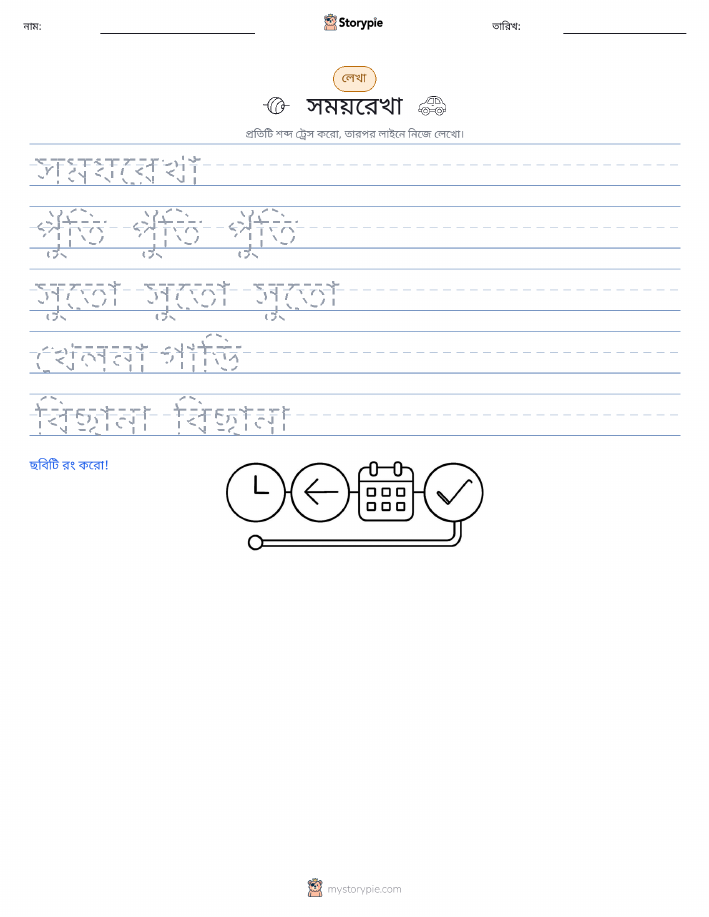 নাম:
Storypie
তারিখ:
লেখা
সময়রেখা
প্রতিটি শব্দ ট্রেস করো, তারপর লাইনে নিজে লেখো।
সময়রেখা
পুঁতি পুঁতি পুঁতি
সুতো সুতো সুতো
খেলনা গাড়ি
বিছানা বিছানা
ছবিটি রং করো!
mystorypie.com